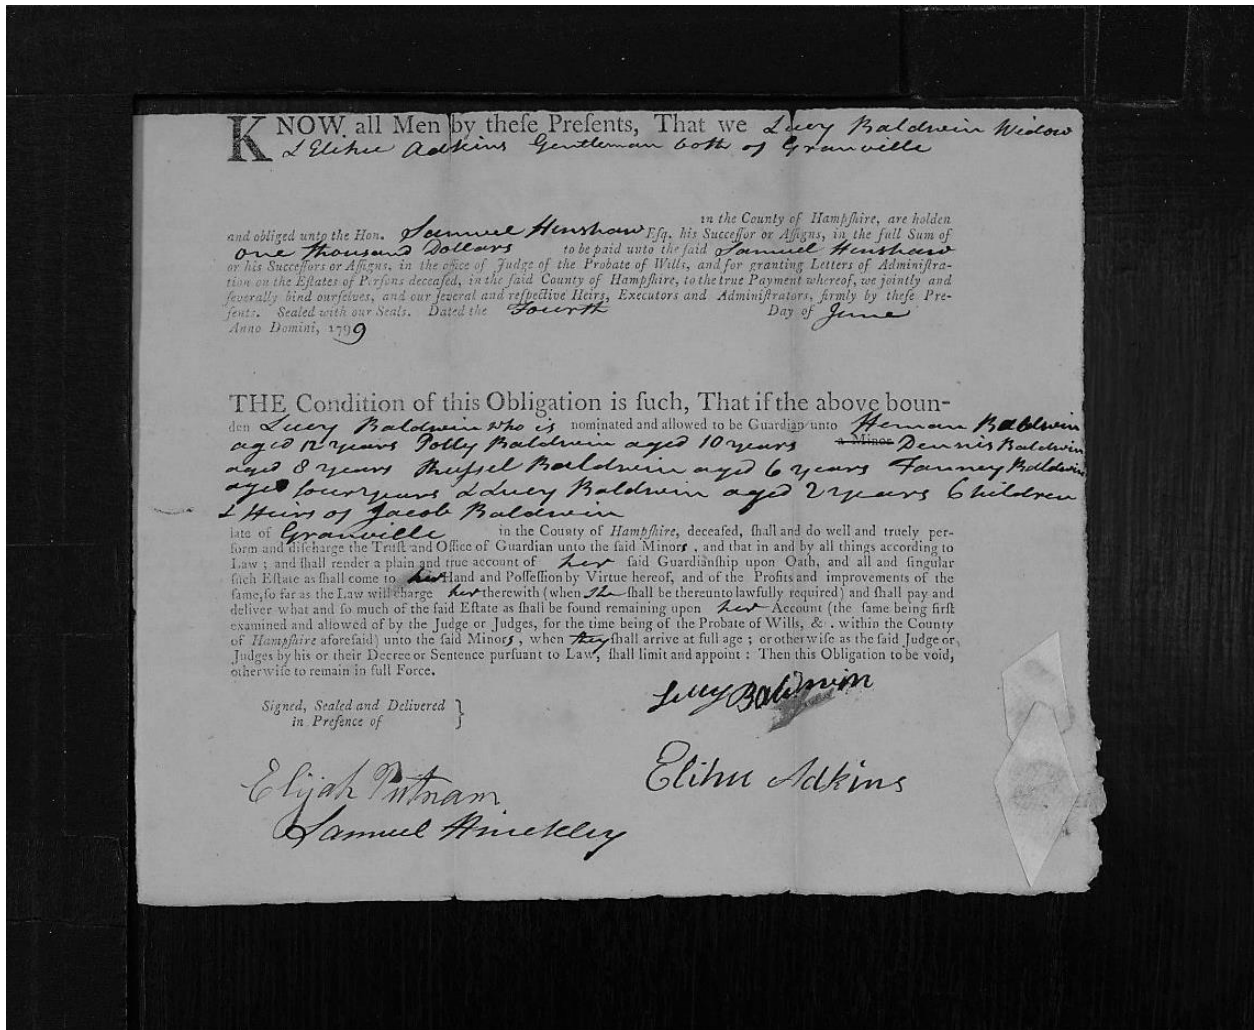 KNOW all Men by theſe Preſents, That we Lucy Baldwin Widow
& Elihu Adkins Gentleman both of Granville
in the County of Hampſhire, are holden
and obliged unto the Hon. Samuel Henshaw Eſq. his Succeſſor or Aſſigns, in the full Sum of
one thousand Dollars to be paid unto the ſaid Samuel Henshaw
or his Succeſſors or Aſſigns, in the office of Judge of the Probate of Wills, and for granting Letters of Adminiſtra-
tion on the Eſtates of Perſons deceaſed, in the ſaid County of Hampſhire, to the true Payment whereof, we jointly and
ſeverally bind ourſelves, and our ſeveral and reſpective Heirs, Executors and Adminiſtrators, firmly by theſe Pre-
ſents. Sealed with our Seals. Dated the Fourth Day of June
Anno Domini, 1799
THE Condition of this Obligation is ſuch, That if the above boun-
den Lucy Baldwin who is nominated and allowed to be Guardian unto Heman Baldwin
aged 12 years Polly Baldwin aged 10 years a Minor Dennis Baldwin
aged 8 years Russel Baldwin aged 6 years Fanney Baldwin
aged four years & Lucy Baldwin aged 2 years Children
& Heirs of Jacob Baldwin
late of Granville in the County of Hampſhire, deceaſed, ſhall and do well and truely per-
form and diſcharge the Truſt and Office of Guardian unto the ſaid Minors, and that in and by all things according to
Law; and ſhall render a plain and true account of her ſaid Guardianſhip upon Oath, and all and ſingular
ſuch Eſtate as ſhall come to her Hand and Poſſeſſion by Virtue hereof, and of the Profits and improvements of the
ſame, ſo far as the Law will charge her therewith (when she ſhall be thereunto lawfully required) and ſhall pay and
deliver what and ſo much of the ſaid Eſtate as ſhall be found remaining upon her Account (the ſame being firſt
examined and allowed of by the Judge or Judges, for the time being of the Probate of Wills, &. within the County
of Hampſhire aforeſaid) unto the ſaid Minors, when they ſhall arrive at full age; or otherwiſe as the ſaid Judge or
Judges by his or their Decree or Sentence purſuant to Law, ſhall limit and appoint: Then this Obligation to be void,
otherwiſe to remain in full Force.
Lucy Baldwin
Signed, Sealed and Delivered
in Preſence of }
Elihu Adkins
Elijah Putnam
Samuel Hinckley